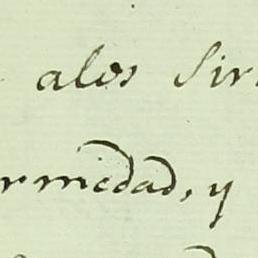 alos Sir
rmedad, y